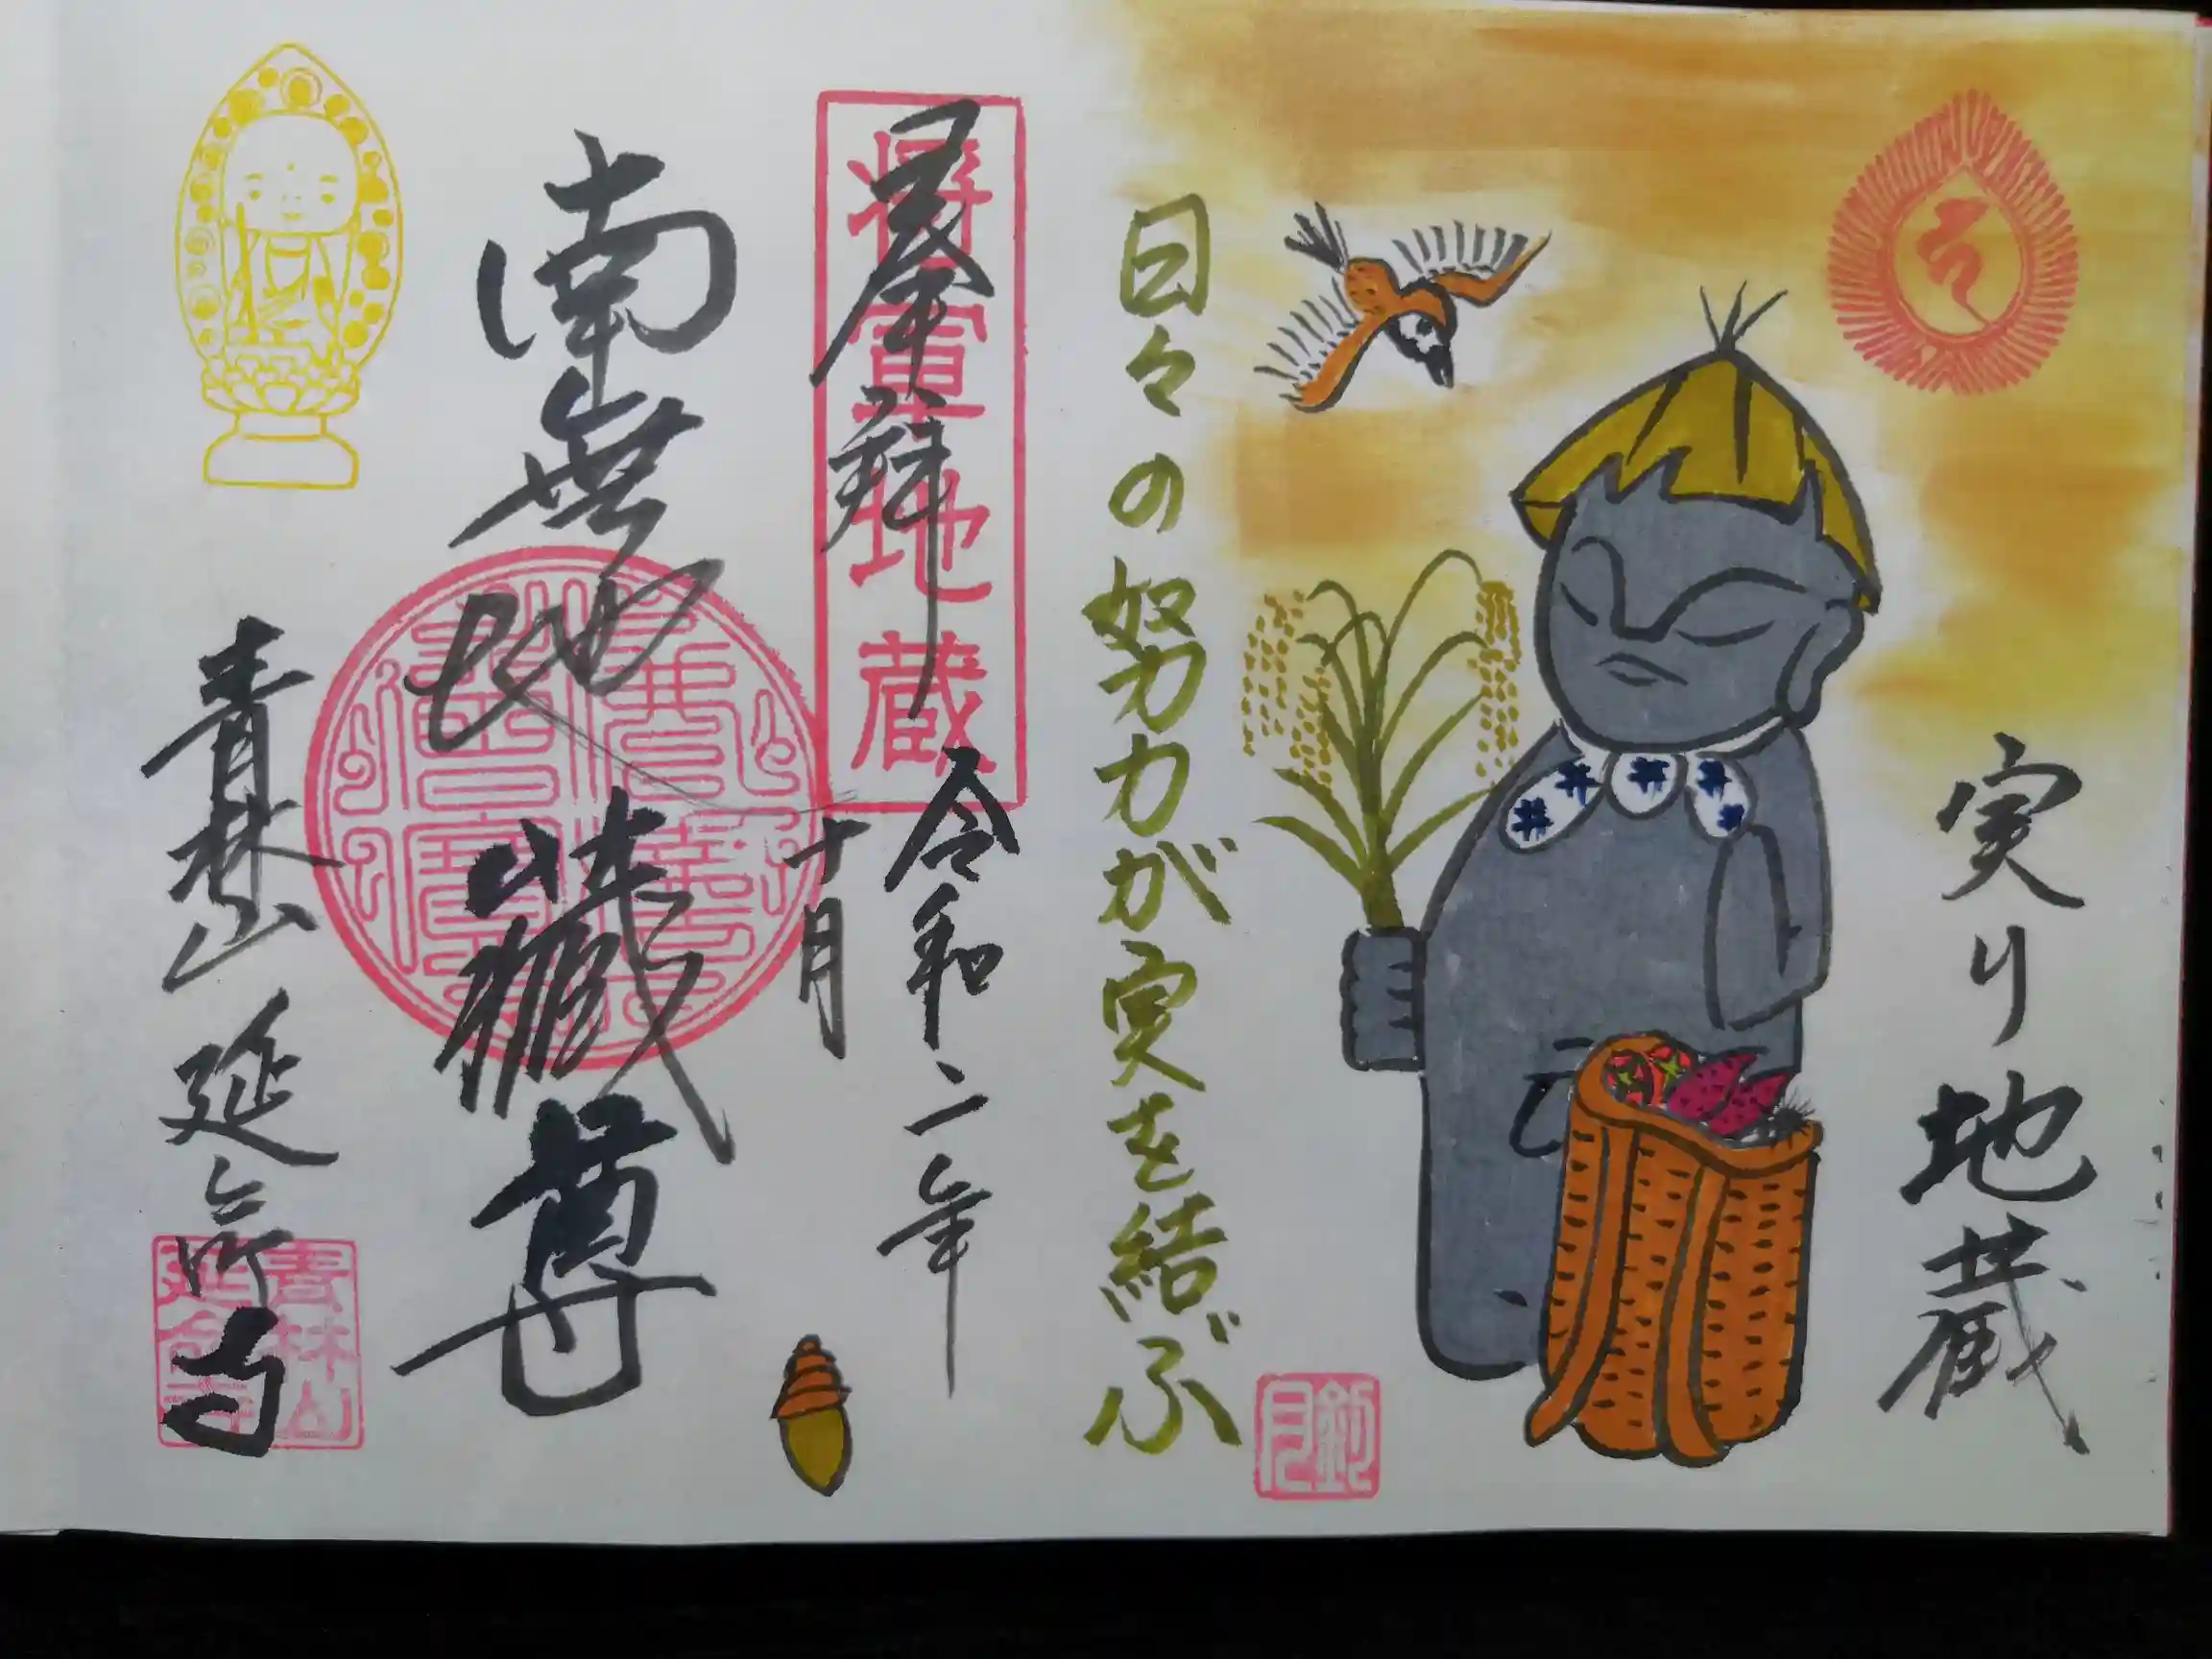 実り地蔵
日々の努力が実を結ぶ
奉拝
将軍地蔵
令和二年
十月
南無地蔵尊
青林山延命寺
青林山
延命寺